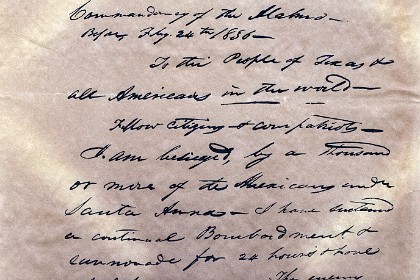 Commandancy of the Alamo—
Bejar, Feby. 24th 1836—
To the People of Texas &
all Americans in the world—
Fellow Citizens & compatriots—
I am besieged, by a thousand
or more of the Mexicans under
Santa Anna— I have sustained
a continual Bombardment &
cannonade for 24 hours & have
The enemy